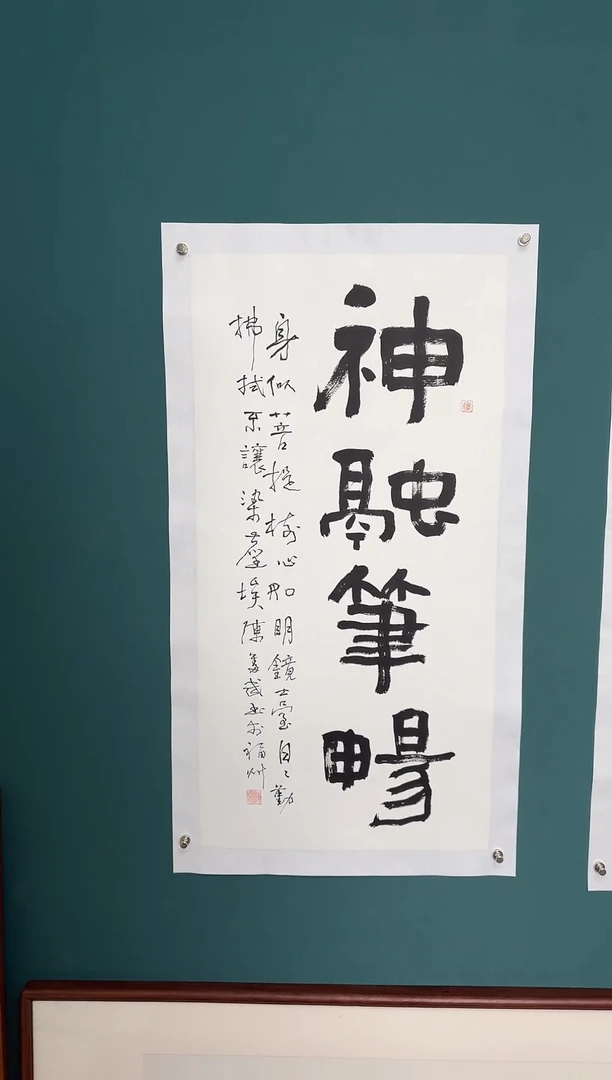 神融筆暢
身似菩提樹心如明鏡臺日々勤
拂拭不讓染塵埃陳奮武書於福州